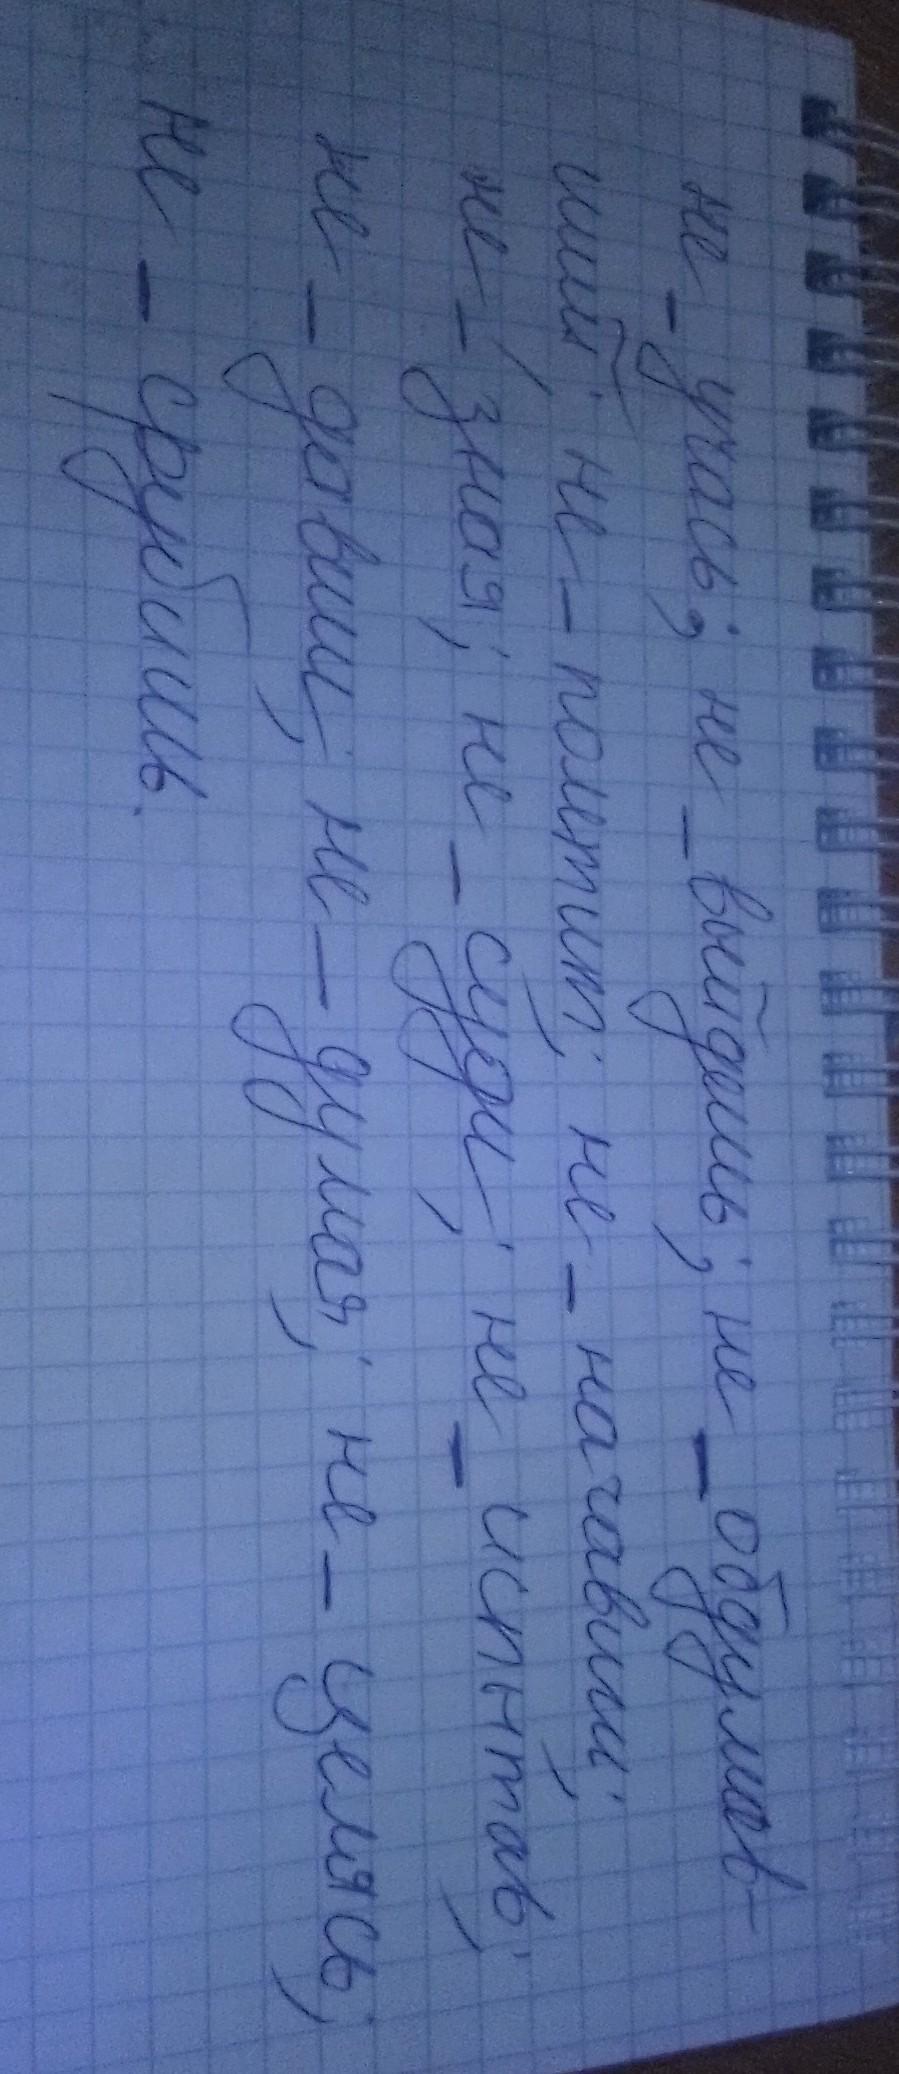 не - учась; не - выйдешь; не - обдумав-
ший; не - полетит; не - начавши;
не - зная; не - суди; не - испытав;
не - довши; не - думая; не - целясь;
не - срубишь.